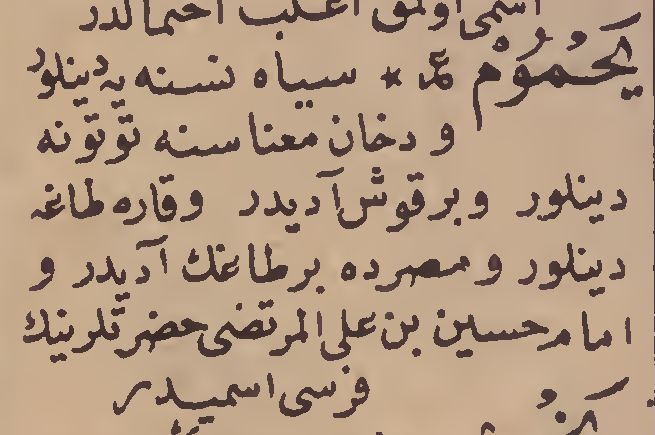 اسمى اولمق اغلب احتمالدر
يَحْمُوْم عم * سياه نسنه يه دينلور
و دخان معناسنه توتونه
دينلور و بر قوش آديدر و قاره طاغه
دينلور و مصرده بر طاغك آديدر و
امام حسين بن على المرتضى حضرتلرينك
فرسى اسميدر